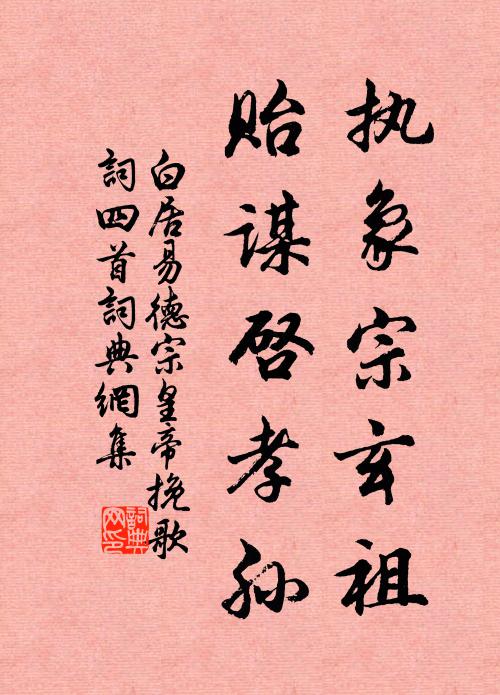 执象宗玄祖
贻谋启孝孙
白居易德宗皇帝挽歌
詞四首詞典網集
詞典网印